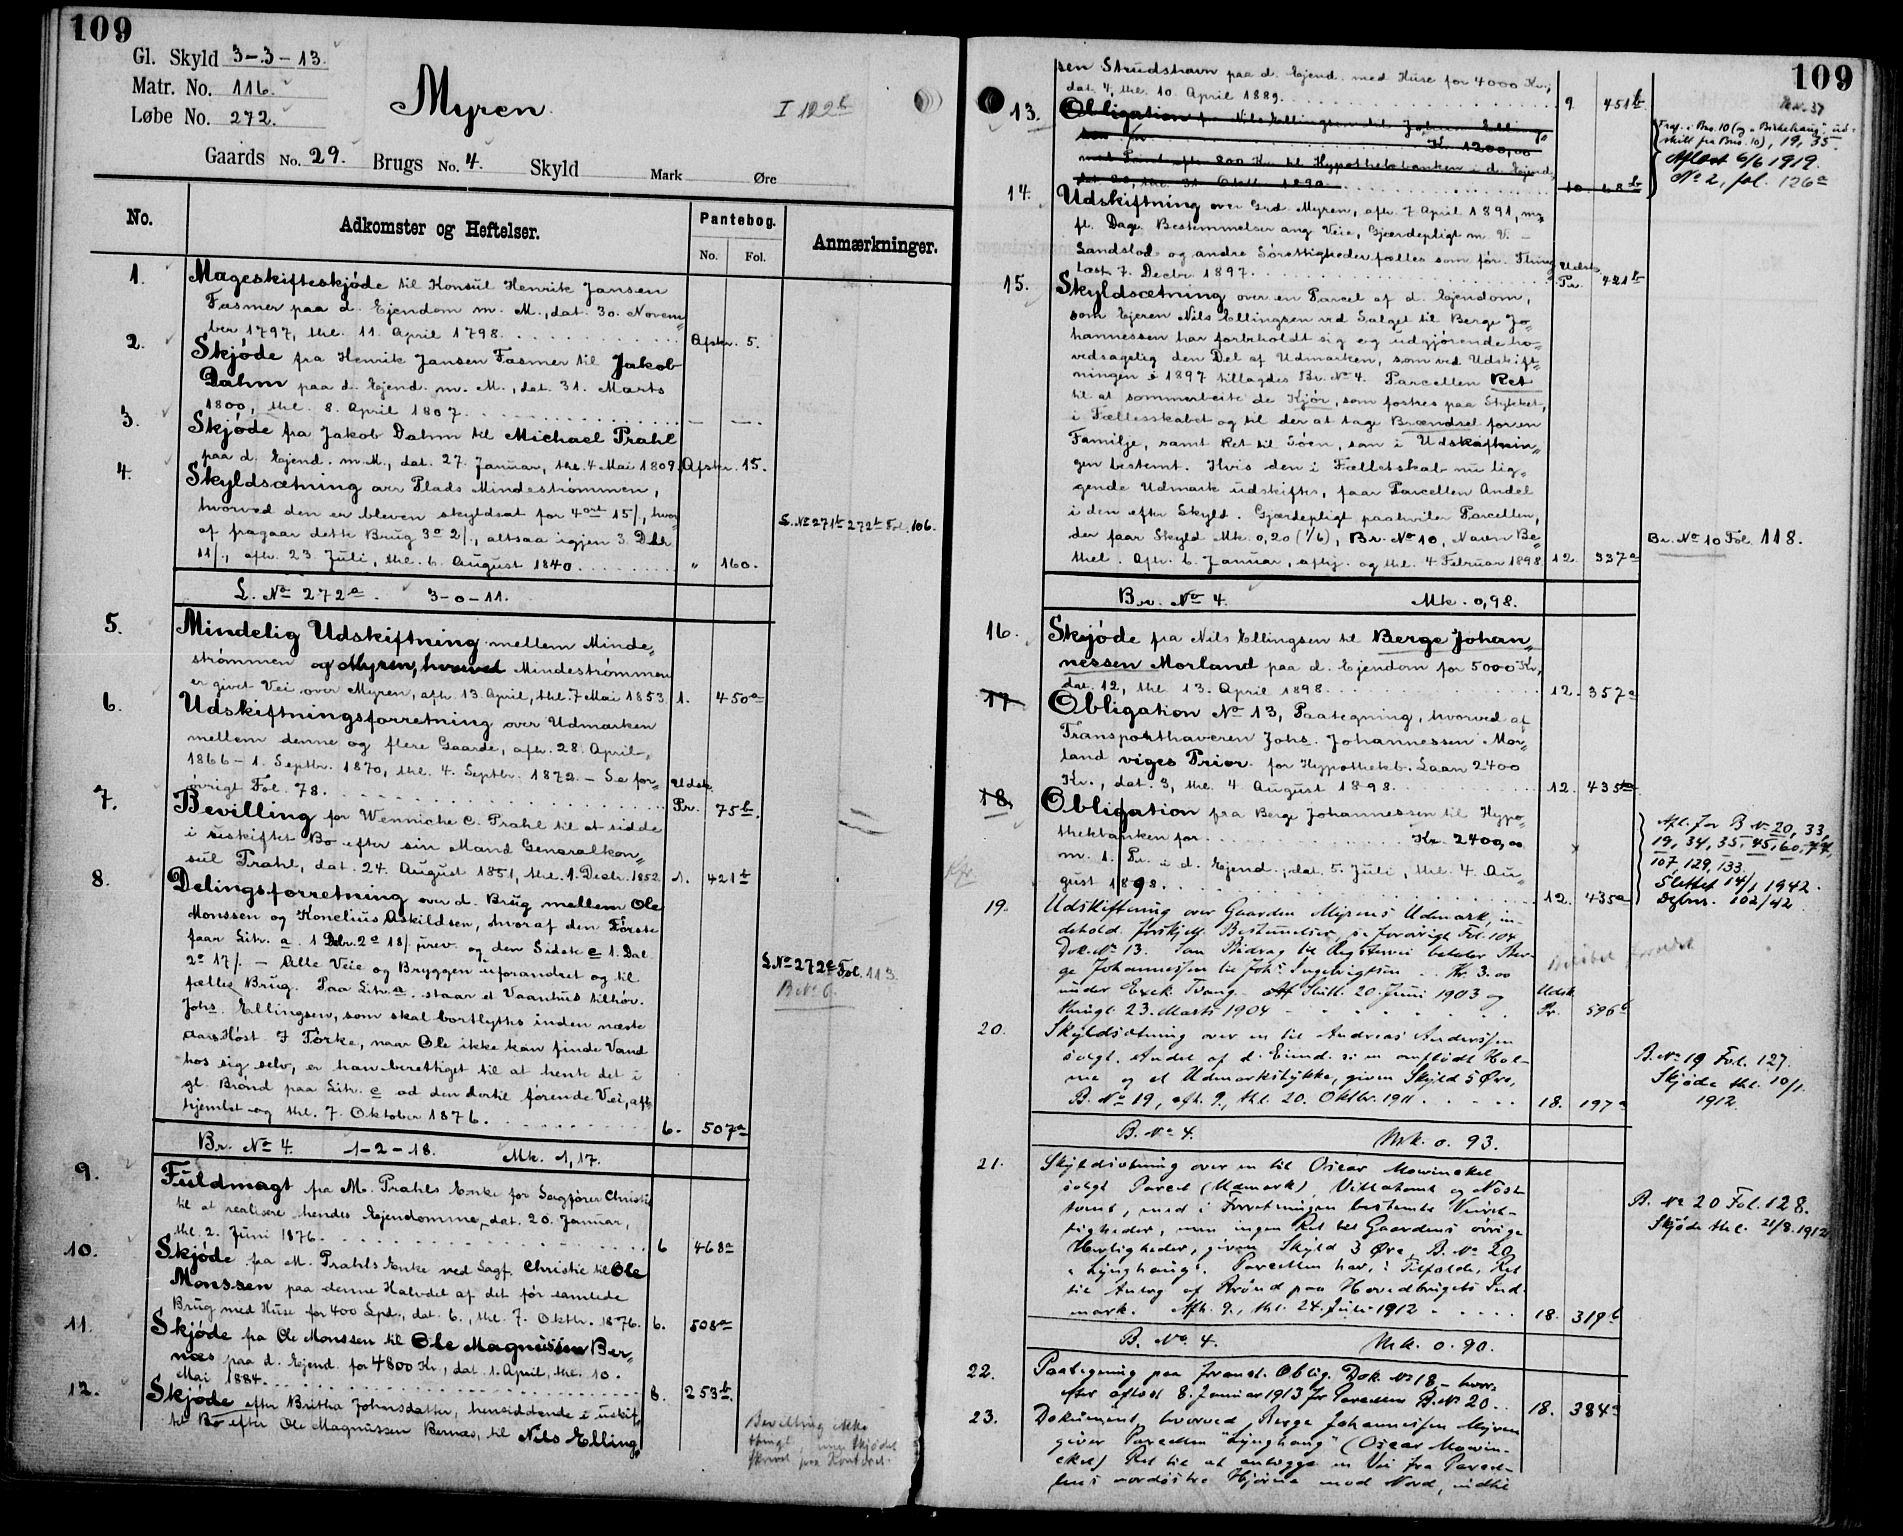 109
Gl. Skyld 3-3-13.
Matr. No. 116.
Løbe No. 272.
Myren.
I 122b
Gaards No. 29. Brugs No. 4. Skyld Mark Øre
No. Adkomster og Heftelser. Pantebog. Anmærkninger.
No. Fol.
1. Mageskifteskjöde til Konsul Henrik Jansen
Fasmer paa d. Ejendom m. M., dat. 30. Novem-
ber 1797, thl. 11. April 1798. Afskr. 5.
2. Skjöde fra Henrik Jansen Fasmer til Jakob
Dahm paa d. Ejend. m. M., dat. 31. Marts
1800, thl. 8. April 1807. — —.
3. Skjöde fra Jakob Dahm til Michael Prahl
paa d. Ejend. m. M., dat. 27. Januar, thl. 4 Mai 1809. Afskr. 15.
4. Skyldsætning over Plads Mindestrømmen,
hvorved den er bleven skyldsat for 4 ort 15/, hvor-
af fragaar dette Brug 3 o 2/., altsaa igjen 3 Dlr.
11/., afh. 23. Juli, thl. 6. August 1840. " 160.
L. No 271b 272b Fol. 106.
L. No 272a. 3-0-11.
5. Mindelig Udskiftning mellem Minde-
strømmen og Myren, hvorved Mindestrømmen
er givet Vei over Myren, afh. 13. April, thl. 7 Mai 1853. 1. 450a
6. Udskiftningsforretning over Udmarken
mellem denne og flere Gaarde, afh. 28. April,
1866 - 1. Septbr. 1870, thl. 4. Septbr. 1872. - Se for-
øvrigt Fol. 78. Udsk. Pr. 75b.
7. Bevilling for Wenniche C. Prahl til at sidde
i uskiftet Bo efter sin Mand Generalkon-
sul Prahl, dat. 24. August 1851, thl. 1. Decbr. 1852. 1. 421b
8. Delingsforretning over d. Brug mellem Ole
Monssen og Konelius Askildsen, hvoraf den Første
faar Litr. a. 1 Dlr. 2 o 18/. urev. og den Sidste c 1. Dal.
2 o 17/. - Alle Veie og Bryggen uforandret og til
fælles Brug. Paa Litr. a. staar et Vaanhus tilhør.
Johs. Ellingsen, som skal bortflyttes inden næste
Aars Høst. I Tørke, naar Ole ikke kan finde Vand
hos sig selv, er han berettiget til at hente det i
gl. Brønd paa Litr. c ad den dertil førende Vei, aft.
hjemlet og thl. 7. Oktober 1876. 6. 507a
L. No 272c Fol. 113.
B. No 6.
Br. No 4. 1-2-18. Mk. 1,17.
9. Fuldmagt fra M. Prahls Enke for Sagfører Christie
til at realisere hendes Ejendomme, dat. 20. Januar,
thl. 2. Juni 1876. 6 468a
10. Skjöde fra M. Prahls Enke ved Sagf. Christie til Ole
Monssen paa denne Halvdel af det før samlede
Brug med Huse for 400 Spd., dat. 6., thl. 7. Oktbr. 1876. 6. 508a
11. Skjöde fra Ole Monssen til Ole Magnussen Ber-
næs paa d. Ejend. for 4800 Kr., dat. 1. April, thl. 10.
Mai 1884. 8. 253b.
12. Skjöde efter Britha Johnsdatter, hensiddende i uskif-
tet Bo efter Ole Magnussen Bernæs, til Nils Elling-
Bevilling ikke
thingl., men Skjødet
skrevet paa
109
sen Strudshavn paa d. Ejend. med Huse for 4000 Kr.,
dat. 4, thl. 10. April 1889. 9. 451b.
13. Obligation fra Nils Ellingsen til Johan Elling-
sen for Kr. 1200,00
med Pant efter 800 Kr. til Hypothekbanken i d. Ejend.,
dat. 20, thl. 31. Oktb. 1890. 10. 68b
Fraf. i Bno. 10 (og "Birkehaug" ud-
skilt fra Bno. 10), 19, 35.
Aflæst 6/6 1919.
No 2, fol. 126a
14. Udskiftning over Grd. Myren, afh. 7 April 1891, m.
fl. Dage. Bestemmelser ang. Veie, Gjærdepligt m. V. -
Landslod og andre Sörettigheder fælles som før. Thing-
læst 7. Decbr 1897. Udsk. Pr. 421b
15. Skyldsætning over en Parcel af d. Ejendom,
som Ejeren Nils Ellingsen ved Salget til Berge Jo-
hannessen har forbeholdt sig og udgjørende ho-
vedsagelig den Del af Udmarken, som ved Udskift-
ningen i 1897 tillagdes Br. No 4. Parcellen Ret
til at sommerbeite de Kjør, som fostres paa Stykket,
i Fællesskabet og til der at tage Brændsel for en
Familje, samt Ret til Söen, som i Udskiftnin-
gen bestemt. Hvis den i Fælledskab nu lig-
gende Udmark udskiftes, faar Parcellen Andel
i den efter Skyld. Gjærdepligt paahviler Parcellen,
der faar Skyld Mk. 0,20 (1/6), Br. No 10, Navn Be-
thel. Afh. 6. Januar, afhj. og thl. 4 Februar 1898. 12. 337a
Br. No 10 Fol. 118.
Br. No 4. Mk. 0,98.
16. Skjöde fra Nils Ellingsen til Berge Johan-
nessen Morland paa d. Ejendom for 5000 Kr.,
dat. 12, thl. 13. April 1898. 12. 357a
17. Obligation No 13, Paategning, hvorved af
Transporthaveren Johs. Johannessen Mor-
land viges Prior. for Hypothekb. Laan 2400
Kr., dat. 3, thl. 4 August 1898. 12. 435a
18. Obligation fra Berge Johannessen til Hypo-
thekbanken for Kr. 2400,00
m. 1. Pr. i d. Ejend., dat. 5. Juli, thl. 4. Au-
gust 1898. 12. 435a
Afl. for B. No 20, 33,
19, 34, 35, 45, 60, 77,
107 129, 133.
Slettet 14/1 1942.
Dgbnr. 102/42
19. Udskiftning over Gaarden Myrens Udmark, in-
dehold. forskjell. Bestemmelser, se forøvrigt Fol. 104
Dok. No 13. Som Bidrag til betaler Ber-
ge Johannessen til Johs. Ingebrigtsen Kr. 3.00
under Exek. Tvang. Slutt. 20. Juni 1903 og
thingl. 23. Marts 1904 Udsk. Pr. 596b
20. Skyldsætning over en til Andreas Anderssen
solgt Andel af d. Eiend. : en omflødt Hol-
me og et Udmarkstykke, given Skyld 5 Øre,
B. No 19, afh. 9., thl. 20. Oktbr. 1911 18. 197a
B. No 19 Fol. 127.
Skjøde thl. 10/1.
1912.
B. No 4. Mrk. 0.93.
21. Skyldsætning over en til Oscar Mowinckel
solgt Parcel (Udmark), Villatomt og Nøst-
tomt, med i Forretningen bestemte Veiret-
tigheder, men ingen Ret til Gaardens øvrige
Herligheder, given Skyld 3 Øre, B. No 20,
"Lynghaug". Parcellen har, i Tilfælde, Ret
til Anlæg af Brønd paa Hovedbrugets Ind-
mark. Afh. 9., thl. 24. Juli 1912 18. 319b
B. No 20 Fol. 128.
Skjøde thl. 21/8. 1912
B. No. 4. Mrk. 0.90.
22. Paategning paa foranst. Oblig. Dok. No 18 - hvor-
efter aflæst 8. Januar 1913 for Parcellen B. No 20. 18. 384a
23. Dokument, hvorved Berge Johannessen Myren
giver Parcellen "Lynghaug" (Oscar Mowin-
ckel) Ret til at anlægge en Vei fra Parcel-
lens nordøstre Hjørne mod Nord, indtil